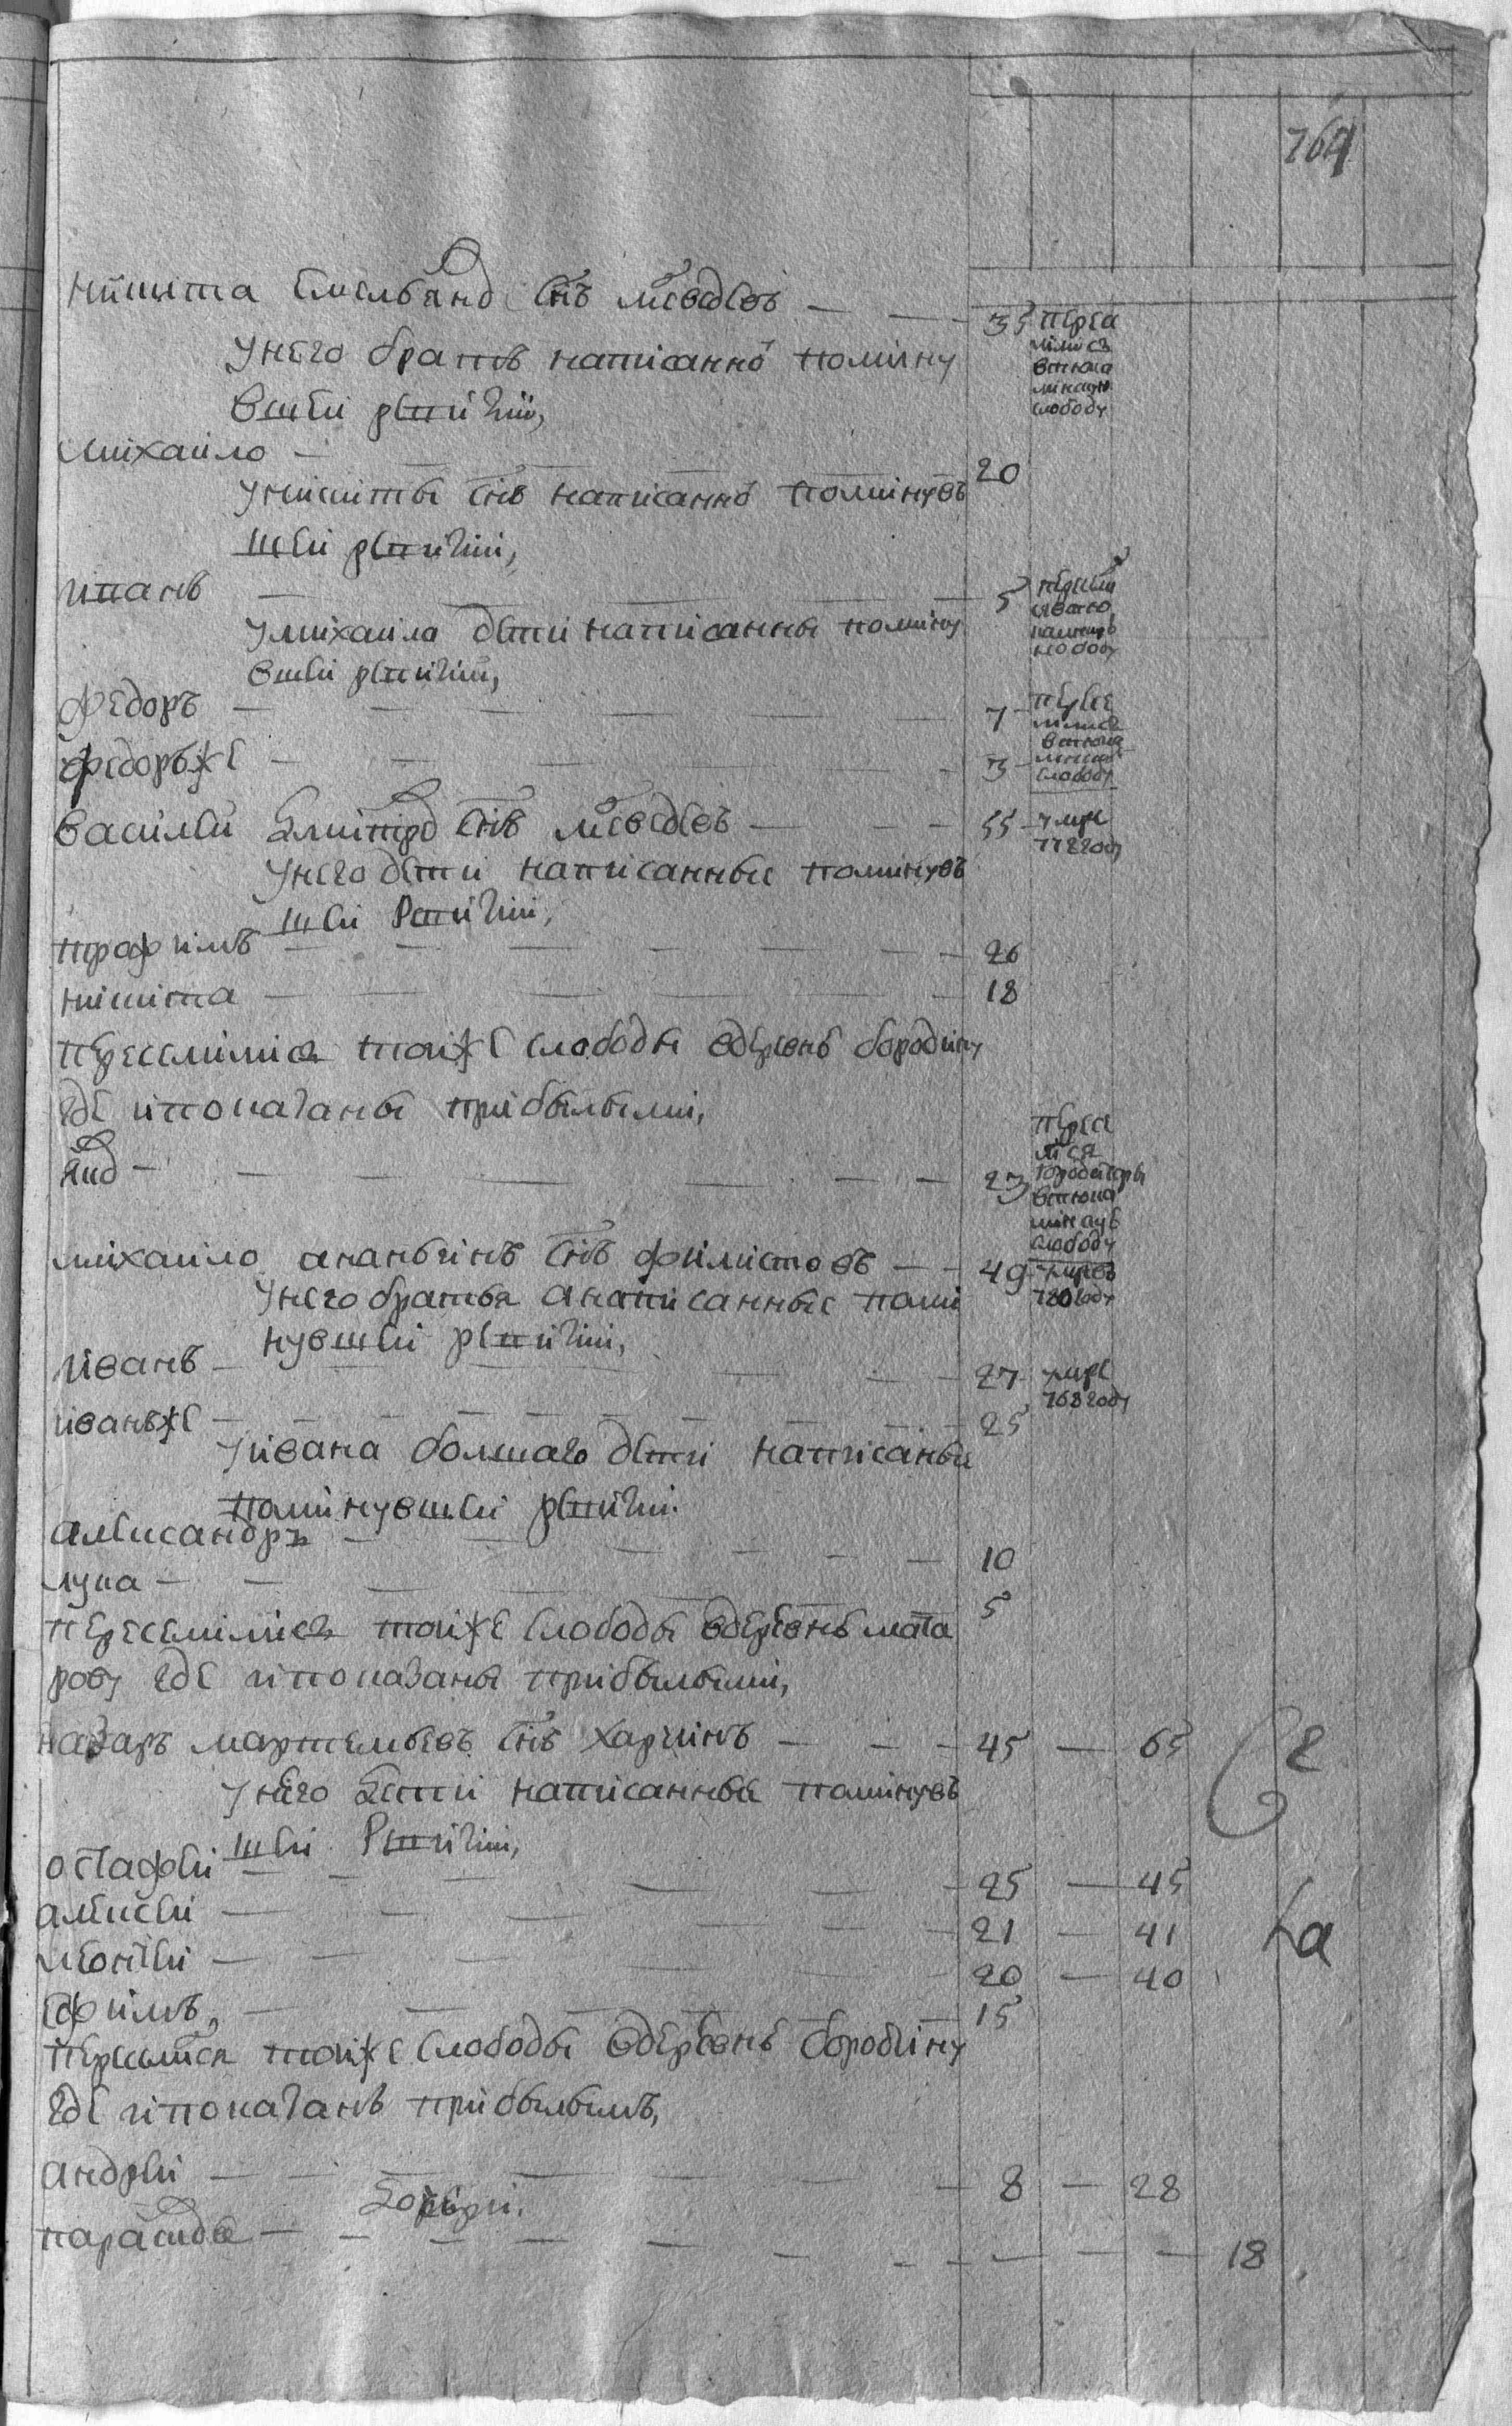 764
никита емельянов снъ медведевъ — — 35 пересе
лился
втюка
линскую
слободу
Унего братъ написанно помину
вшеи ревизии,
михаило — 20
Уникиты снъ написанно поминув
шеи ревизии,
иванъ — 5
слободу
Умихаила дети написанны помину
вшеи ревизии,
федоръ — 7 пересе
лился
втюка
федоръже — 3
слободу
василеи дмитреев снъ медведевъ — 55 умре
772году
Унего дети написанные поминувъ
шеи Ревизии,
трофимъ — 26
никита — 18
переселились тоиже слободы вдеревнь бородину
где ипоказаны прибылыми,
яков — 23 пересе
лился
втюка
слободу
михаило ананьинъ снъ филистовъ — 49 умре въ
780году
Унего братья анаписанные поми
нувшеи ревизии,
иванъ — 27 умре
768году
иванъже — 25
Уивана болшаго дети написаные
поминувшеи ревизии.
алеѯандръ — 10
лука — 5
переселились тоиже слободы вдеревнь мата
рову где ипоказаны прибылыми,
назаръ мартемьевъ снъ харинъ — 45 — 65
Унего дети написанные поминувъ
шеи Ревизии,
остафеи — 25 — 45
алексеи — 21 — 41
леонтеи — 20 — 40
ефимъ, — 15
переселился тоиже слободы вдеревнь бородину
где ипоказанъ прибылымъ,
андреи — 8 — 28
дочери.
парасковья — 18